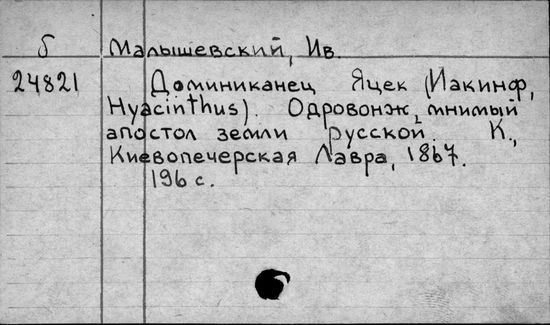 б Малышевский, Ив.
24821 Доминиканец Яцек (Иакинф,
Hyacinthus). Одровонж, мнимый
апостол земли русской. К.,
Киевопечерская Лавра, 1867.
196 с.